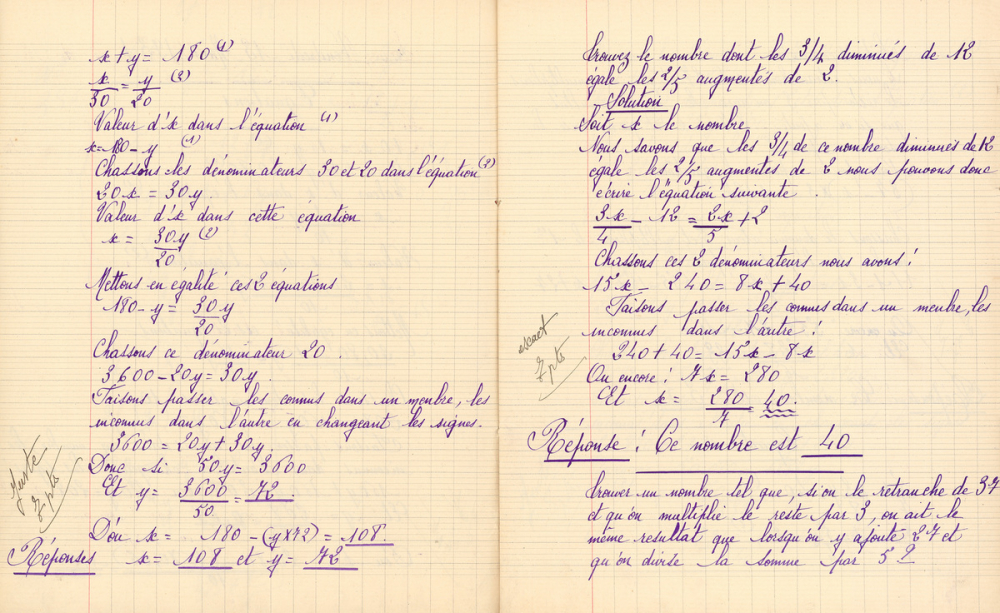 x + y = 180 (1)
x/30 = y/20 (2)
Valeur d'x dans l'équation (1)
x = 180 - y (1)
Chassons les dénominateurs 30 et 20 dans l'équation (2)
20x = 30y.
Valeur d'x dans cette équation
x = 30y/20 (2)
Mettons en égalité ces 2 équations
180 - y = 30y/20
Chassons ce dénominateur 20.
3600 - 20y = 30y.
Faisons passer les connus dans un membre, les
inconnus dans l'autre en changeant les signes.
3600 = 20y + 30y.
Donc si 50y = 3600
Juste
7 pts
Et y = 3600/50 = 72.
D'où x = 180 - (y x 72) = 108.
Réponses x = 108 et y = 72
trouvez le nombre dont les 3/4 diminués de 12
égale les 2/5 augmentés de 2.
Solution
Soit x le nombre
Nous savons que les 3/4 de ce nombre diminués de 12
égale les 2/5 augmentés de 2 nous pouvons donc
écrire l'équation suivante.
3x/4 - 12 = 2x/5 + 2
Chassons ces 2 dénominateurs nous avons :
15x - 240 = 8x + 40
Faisons passer les connus dans un membre, les
inconnus dans l'autre :
exact
7 pts
240 + 40 = 15x - 8x
Ou encore : 7x = 280
Et x = 280/7 = 40.
Réponse : Ce nombre est 40
trouver un nombre tel que, si on le retranche de 37
et qu'on multiplie le reste par 3, on ait le
même resultat que lorsqu'on y ajoute 27 et
qu'on divise la somme par 5 ?